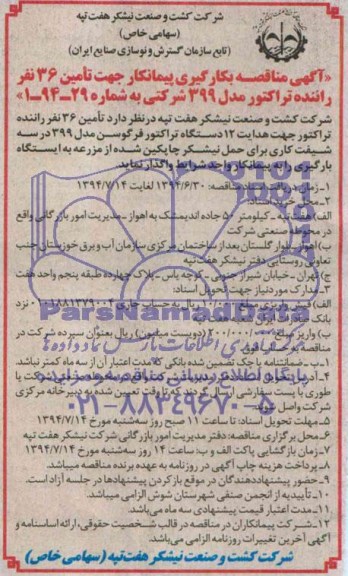 شرکت کشت و صنعت نیشکر هفت تپه
(سهامی خاص)
(تابع سازمان گسترش و نوسازی صنایع ایران)
«آگهی مناقصه بکارگیری پیمانکار جهت تأمین ۳۶ نفر
راننده تراکتور مدل ۳۹۹ شرکتی به شماره ۲۹-۹۴-۱»
شرکت کشت و صنعت نیشکر هفت تپه در نظر دارد تأمین ۳۶ نفر راننده
تراکتور جهت هدایت ۱۲ دستگاه تراکتور فرگوسن مدل ۳۹۹ در سه
شیفت کاری برای حمل نیشکر چاپکین شده از مزرعه به ایستگاه
بارگیری را به پیمانکار واجد شرایط واگذار نماید.
۱- زمان دریافت اسناد مناقصه: ۱۳۹۴/۶/۳۰ لغایت ۱۳۹۴/۷/۱۴
۲- محل خرید اسناد:
الف) هفت تپه - کیلومتر ۵۰ جاده اندیمشک به اهواز - مدیریت امور بازرگانی واقع
در محوطه صنعتی شرکت
ب) اهواز - بلوار گلستان بعد از ساختمان مرکزی سازمان آب و برق خوزستان جنب
تعاونی روستایی دفتر نیشکر هفت تپه
ج) تهران - خیابان شیراز جنوبی - کوچه یاس - پلاک چهارده طبقه پنجم واحد هفت
۳- مدارک مورد نیاز جهت تحویل اسناد:
الف) فیش واریزی مبلغ ریال به حساب جاری ۰۱۰۱۸۸۱۳۷۹۰۰۴ نزد
بانک
ب) واریز مبلغ ۲۰۰/۰۰۰/۰۰۰ (دویست میلیون) ریال بعنوان سپرده شرکت در
مناقصه به حساب فوق
۱-ب- ضمانتنامه یا چک تضمین شده بانکی که مدت اعتبار آن از سه ماه کمتر نباشد.
۴- آدرس تحویل اسناد: دفتر مدیریت شرکت واقع در محوطه صنعتی شرکت یا
طوری با پست سفارشی ارسال گردند که تا وقت تعیین شده به دبیرخانه مرکزی
شرکت واصل شود.
۵- مهلت تحویل اسناد: تا ساعت ۱۱ صبح روز سه‌شنبه مورخ ۱۳۹۴/۷/۱۴
۶- محل برگزاری مناقصه: دفتر مدیریت امور بازرگانی شرکت نیشکر هفت تپه
۷- زمان بازگشایی پاکت الف و ب: ساعت ۱۴ روز سه‌شنبه مورخ ۱۳۹۴/۷/۱۴
۸- پرداخت هزینه چاپ آگهی در روزنامه به عهده برنده مناقصه میباشد.
۹- حضور پیشنهاددهندگان در موقع باز کردن پیشنهادها در جلسه آزاد است.
۱۰- تأییدیه از انجمن صنفی شهرستان شوش الزامی میباشد.
۱۱- مدت اعتبار قیمت پیشنهادی سه ماه می‌باشد.
۱۲- شرکت پیمانکاران در مناقصه در قالب شخصیت حقوقی، ارائه اساسنامه و
آگهی آخرین تغییرات روزنامه الزامی می‌باشد.
شرکت کشت و صنعت نیشکر هفت تپه (سهامی خاص)
ParsNamadData
پایگاه اطلاع رسانی
۰۲۱-۸۸۳۴۹۶۷۰-۵